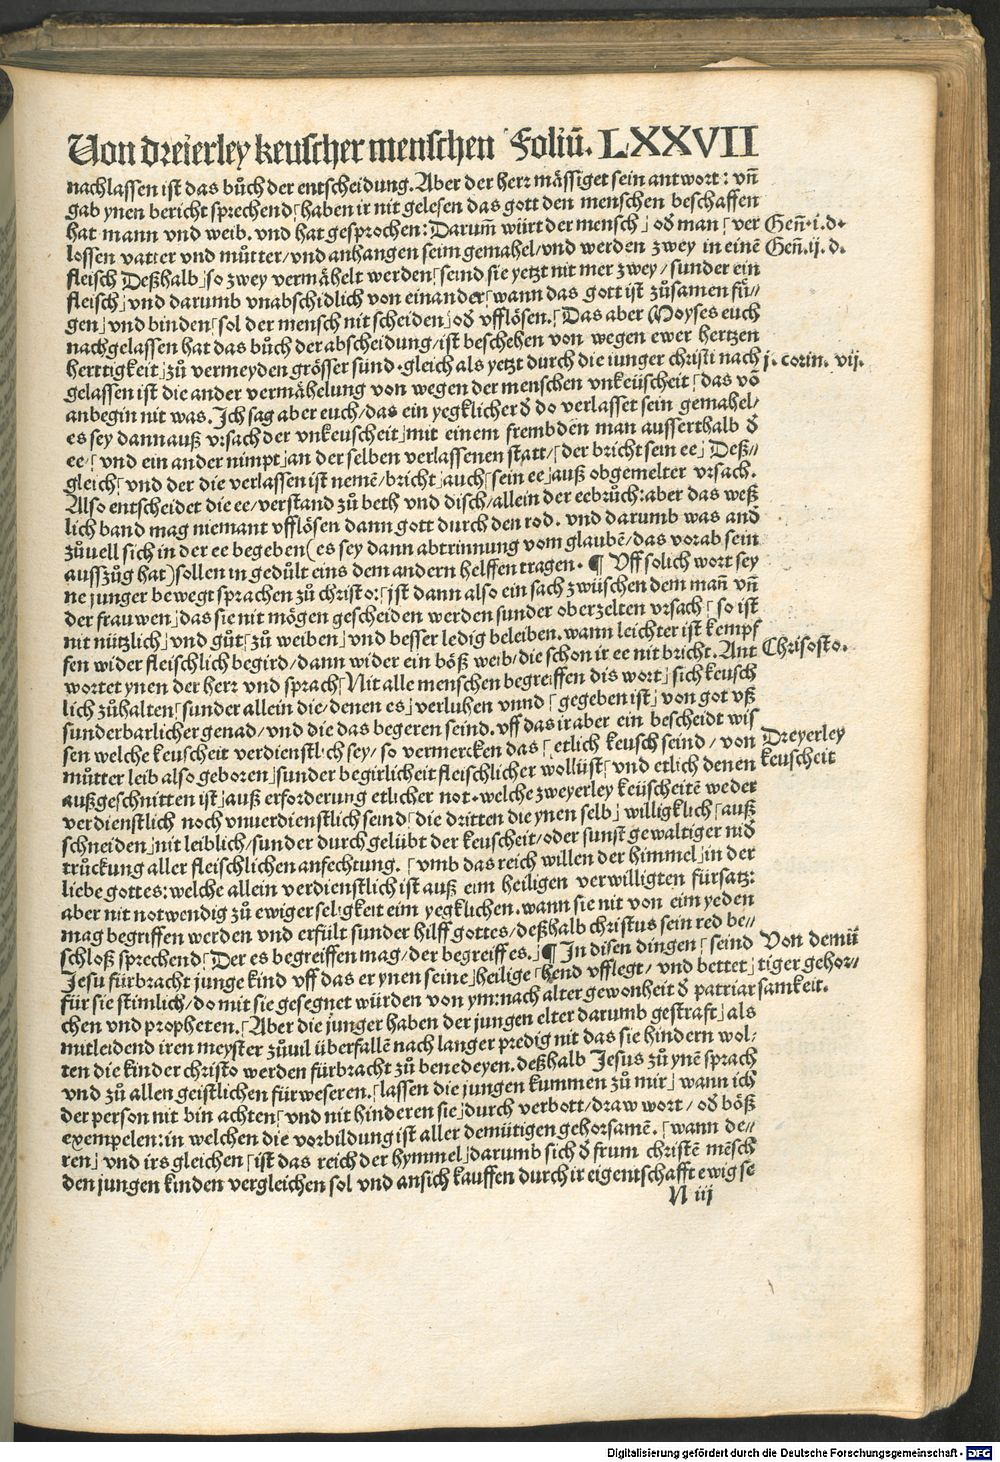 Von dreierley keuscher menschen Foliū. LXXVII
nachlassen ist das bůch der entscheidung. Aber der herr mässiget sein antwort: vn̄
gab ynen bericht sprechend⌈haben ir nit gelesen das gott den menschen beschaffen
hat mann vnd weib. vnd hat gesprochen: Darum̄ würt der mensch⌋ oď man⌈ver
Gen̄.i.d.
lossen vatter vnd můtter/vnd anhangen seim gemahel/vnd werden zwey in einē
Gen̄.ij.d.
fleisch Deßhalb⌋so zwey vermähelt werden⌈seind sie yetzt nit mer zwey/sunder ein
fleisch⌋vnd darumb vnabschidlich von einander⌈wann das gott ist zůsamen fü//
gen⌋vnd binden⌈sol der mensch nit scheiden⌋oď vfflösen.⌈Das aber Moyses euch
nachgelassen hat das bůch der abscheidung/ist beschehen von wegen ewer hertzen
herttigkeit⌋zů vermeyden grösser sünd.gleich als yetzt durch die iunger christi nach
j. corin. vij.
gelassen ist die ander vermähelung von wegen der menschen vnkeüscheit⌈das vō
anbegin nit was. Ich sag aber euch/das ein yegklicher ď do verlasset sein gemahel/
es sey dann auß vrsach der vnkeuscheit⌋mit einem frembden man ausserthalb ď
ee⌈vnd ein ander nimpt⌋an der selben verlassenen statt/⌈der bricht sein ee⌋Deß//
gleich⌈vnd der die verlassen ist nemē/bricht⌋auch⌈sein ee⌋auß obgemelter vrsach.
Also entscheidet die ee/verstand zů beth vnd disch/allein der eebrůch:aber das weß
lich band mag niemant vfflösen dann gott durch den tod. vnd darumb was and
zůuell sich in der ee begeben(es sey dann abtrinnung vom glaubē/das vorab sein
ausszůg hat)sollen in gedůlt eins dem andern helffen tragen. ¶ Vff solich wort sey
ne junger bewegt sprachen zů christo:⌈ist dann also ein sach zwüschen dem man̄ vn̄
der frauwen⌋das sie nit mögen gescheiden werden sunder ob erzelten vrsach⌈so ist
nit nützlich⌋vnd gůt⌈zů weiben⌋vnd besser ledig beleiben. wann leichter ist kempf
fen wider fleischlich begird/dann wider ein böß weib/die schon ir ee nit bricht. Ant
Chrisosto.
wortet ynen der herr vnd sprach⌈Nit alle menschen begreiffen dis wort⌋sich keusch
lich zůhalten⌈sunder allein die/denen es⌋verluhen vnnd⌈gegeben ist⌋von got vß
sunderbarlicher genad/vnd die das begeren seind. vff das ir aber ein bescheidt wis
sen welche keuscheit verdienstlich sey/so vermercken das⌈etlich keusch seind/von
Dreyerley
můtter leib also geboren⌋sunder begirlicheit fleischlicher wollüst⌈vnd etlich denen
keuscheit
außgeschnitten ist⌋auß erforderung etlicher not.welche zweyerley keüscheitē weder
verdienstlich noch vnuerdienstlich seind⌈die dritten die ynen selb⌋willigklich⌈auß
schneiden⌋nit leiblich/sunder durch gelübt der keuscheit/oder sunst gewaltiger nid
trückung aller fleischlichen anfechtung.⌈vmb das reich willen der himmel⌋in der
liebe gottes:welche allein verdienstlich ist auß eim heiligen verwilligten fürsatz:
aber nit notwendig zů ewiger seligkeit eim yegklichen.wann sie nit von eim yeden
mag begriffen werden vnd erfült sunder hilff gottes/deßhalb christus sein red be//
schloß sprechend⌈Der es begreiffen mag/der begreiff es.⌋¶ In disen dingen⌈seind
Von demü
Jesu fürbracht junge kind vff das er ynen seine⌋heilige⌈hend vfflegt/vnd bettet⌋
tiger gehor//
für sie stimlich/do mit sie gesegnet würden von ym:nach alter gewonheit ď patriar
samkeit.
chen vnd propheten.⌈Aber die junger haben der jungen elter darumb gestrafft⌋als
mitleidend iren meyster zůuil überfallē nach langer predig nit das sie hindern wol/
ten die kinder christo werden fürbracht zů benedeyen.deßhalb Jesus zů ynē sprach
vnd zů allen geistlichen fürweseren.⌈lassen die jungen kummen zů mir⌋wann ich
der person nit bin achten⌈vnd nit hinderen sie⌋durch verbott/draw wort/oď böß
exempelen:in welchen die vorbildung ist aller demütigen gehorsamē.⌈wann de//
ren⌋vnd irs gleichen⌈ist das reich der hymmel⌋darumb sich ď frum christē mēsch
den jungen kinden vergleichen sol vnd an sich kauffen durch ir eigentschafft ewig se
N iij
Digitalisierung gefördert durch die Deutsche Forschungsgemeinschaft - DFG